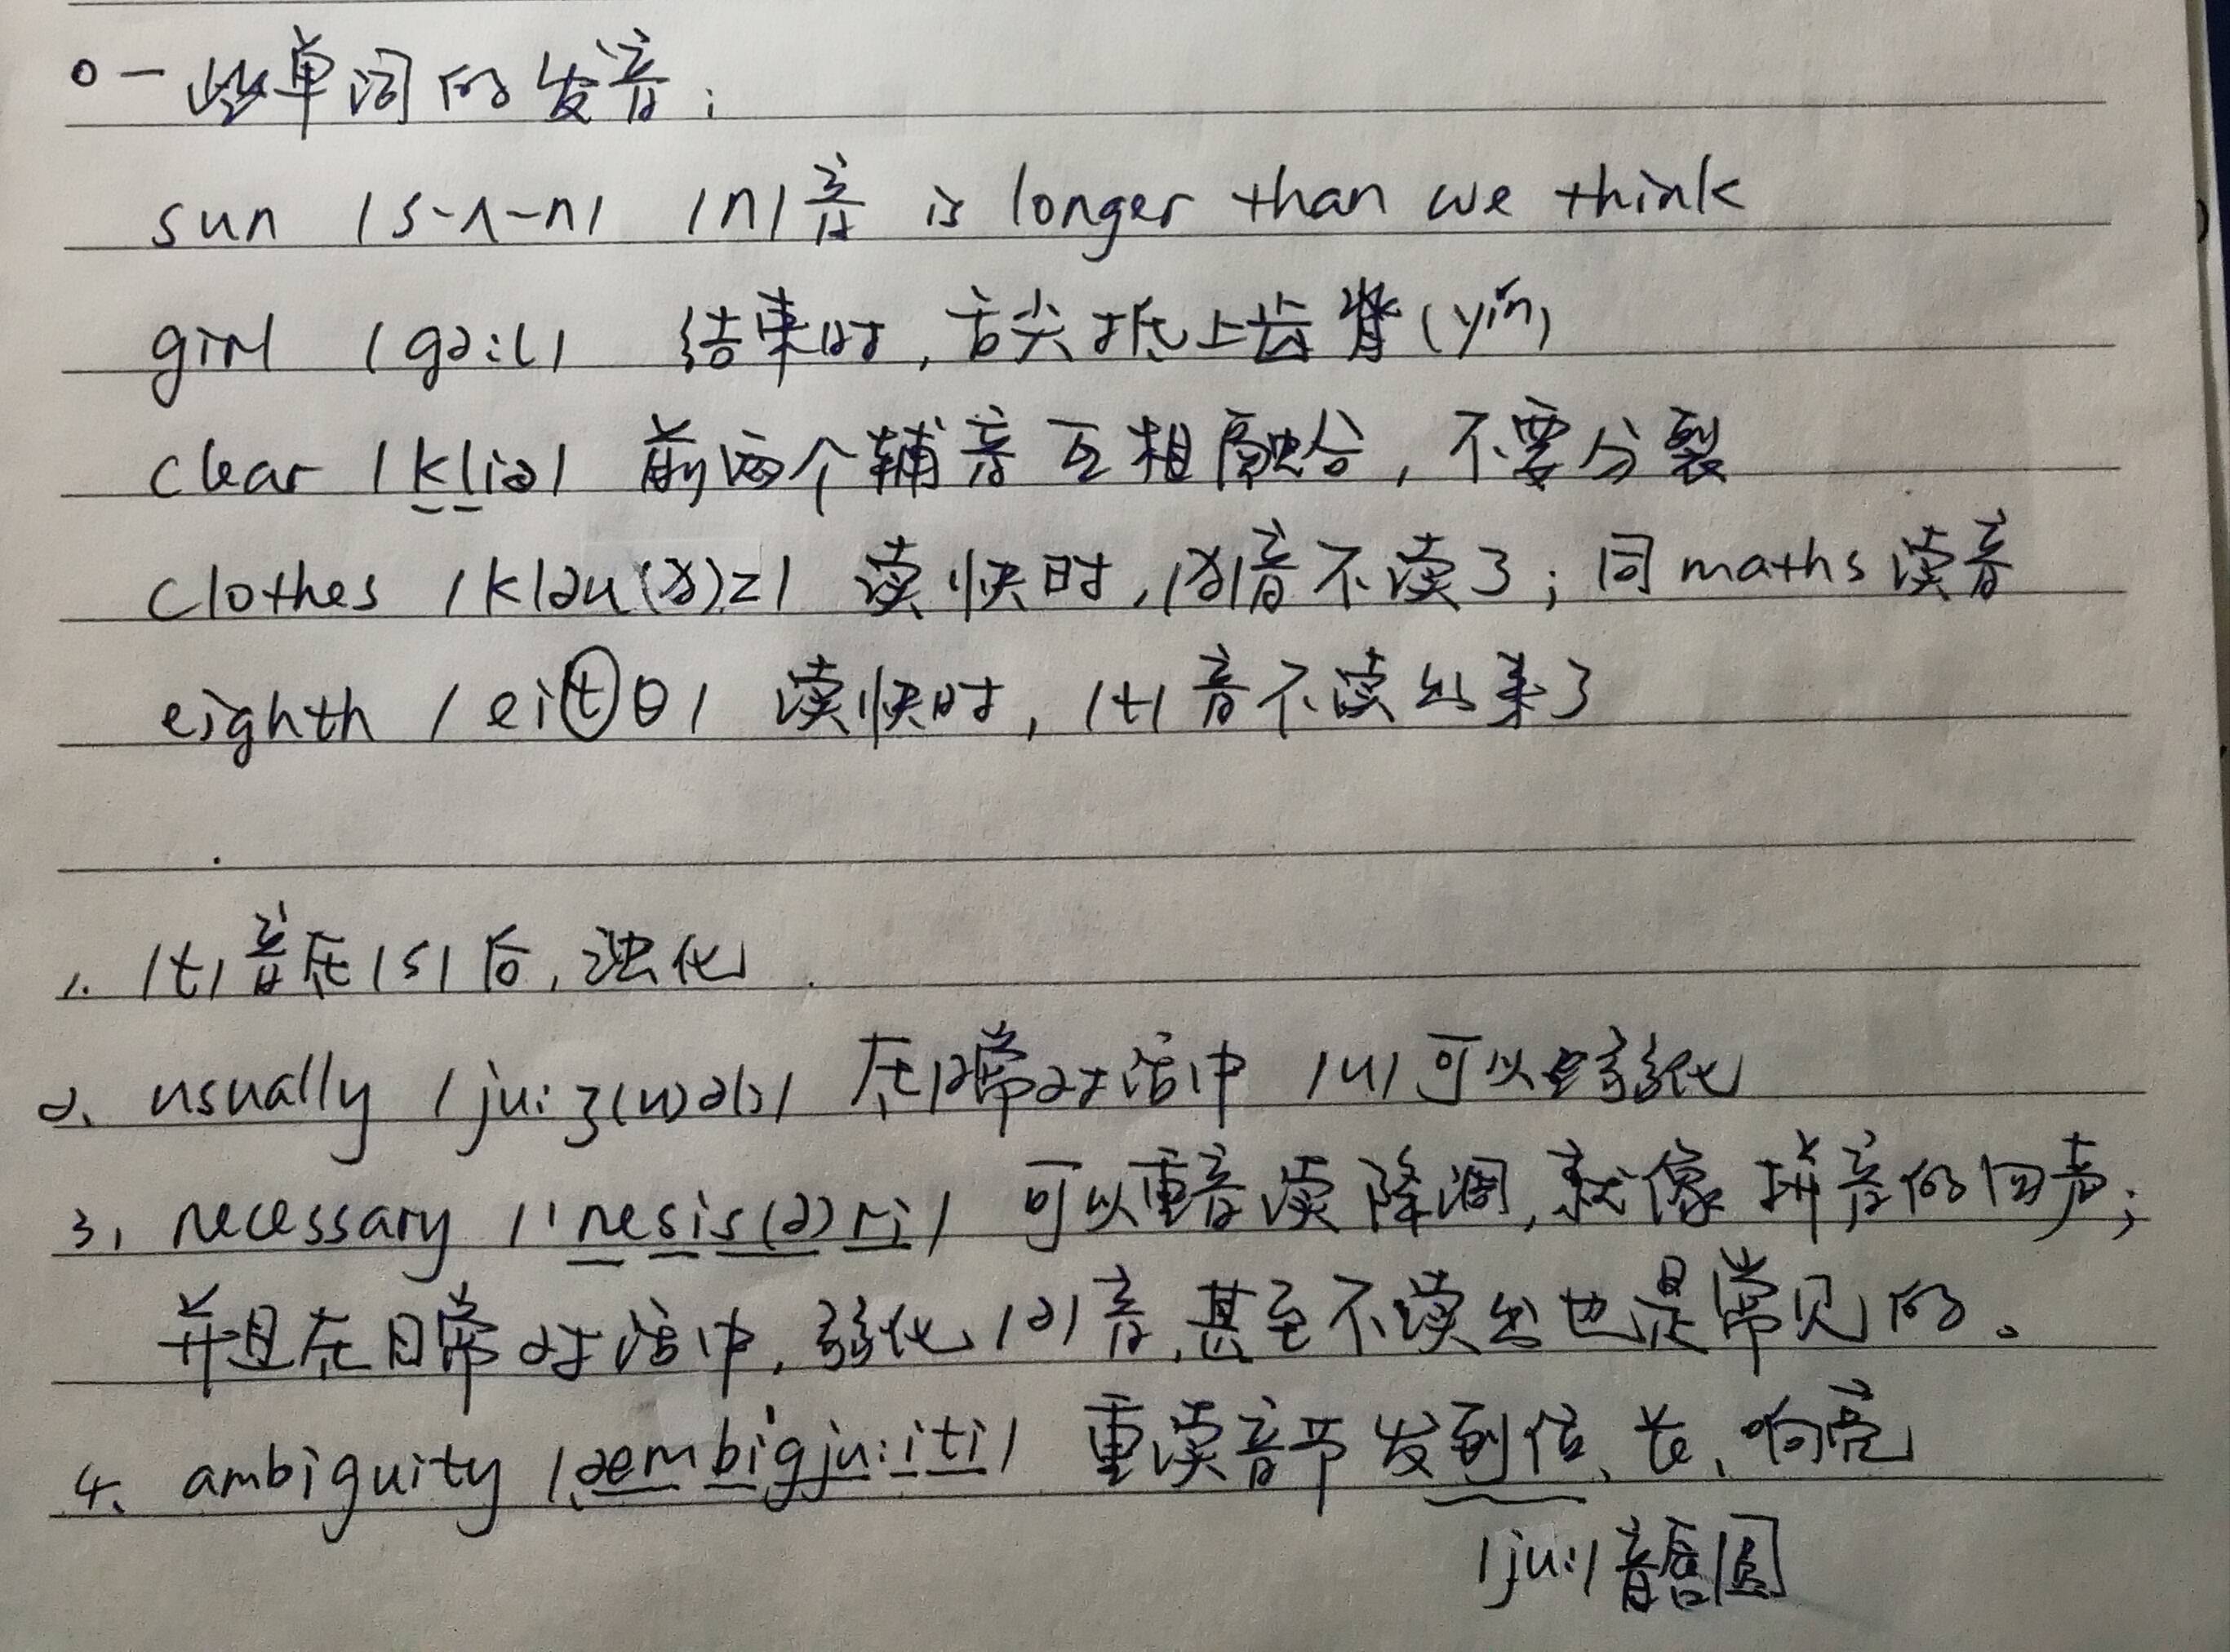 ○一些单词的发音:
sun /s-ʌ-n/ /n/音 is longer than we think
girl /gə:l/ 结束时,舌尖抵上齿龈(yín)
clear /kliə/ 前两个辅音互相融合,不要分裂
clothes /kləu(ð)z/ 读快时,/ð/音不读了;同maths读音
eighth /eitθ/ 读快时,/t/音不读出来了
1. /t/音在/s/后,浊化
2. usually /ju:ʒ(u)əli/ 在日常对话中 /u/可以弱化
3, necessary /'nesis(ə)ri/ 可以重音读降调,就像拼音的四声;
并且在日常对话中,弱化/ə/音,甚至不读出也是常见的。
4. ambiguity /ˌæmbi'gju:iti/ 重读音节发到位、长、响亮
/ju:/音唇圆